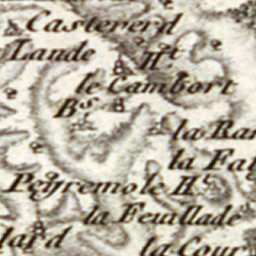 Castererd
Lande Ht
le Cambort
Bs
la Ra
la Fa
Peyremole Ht
la Feuillade
lard
la Cour